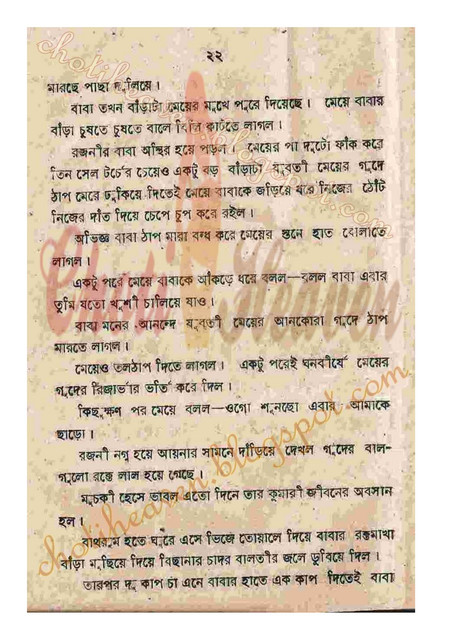 ২২
মারছে পাছা দুলিয়ে।
বাবা তখন বাঁড়াটা মেয়ের মুখে পুরে দিয়েছে। মেয়ে বাবার
বাঁড়া চুষতে চুষতে বালে বিলি কাটতে লাগল।
রজনীর বাবা অস্থির হয়ে পড়ল। মেয়ের পা দুটো ফাঁক করে
তিন সেল টর্চের চেয়েও একটু বড় বাঁড়াটা যুবতী মেয়ের গুদে
ঠাপ মেরে ঢুকিয়ে দিতেই মেয়ে বাবাকে জড়িয়ে ধরে নিজের ঠোঁট
নিজের দাঁত দিয়ে চেপে চুপ করে রইল।
অভিজ্ঞ বাবা ঠাপ মারা বন্ধ করে মেয়ের স্তনে হাত বোলাতে
লাগল।
একটু পরে মেয়ে বাবাকে আঁকড়ে ধরে বলল—বলল বাবা এবার
তুমি যতো খুশী চালিয়ে যাও।
বাবা মনের আনন্দে যুবতী মেয়ের আনকোরা গুদে ঠাপ
মারতে লাগল।
মেয়েও তলঠাপ দিতে লাগল। একটু পরেই ঘনবীর্যে মেয়ের
গুদের রিজার্ভার ভর্তি করে দিল।
কিছুক্ষণ পর মেয়ে বলল—ওগো শুনছো এবার আমাকে
ছাড়ো।
রজনী নগ্ন হয়ে আয়নার সামনে দাঁড়িয়ে দেখল গুদের বাল-
গুলো রক্তে লাল হয়ে গেছে।
মুচকী হেসে ভাবল এতো দিনে তার কুমারী জীবনের অবসান
হল।
বাথরুম হতে ঘুরে এসে ভিজে তোয়ালে দিয়ে বাবার রক্তমাখা
বাঁড়া মুছিয়ে দিয়ে বিছানার চাদর বালতীর জলে ডুবিয়ে দিল।
তারপর দু কাপ চা এনে বাবার হাতে এক কাপ দিতেই বাবা
Choti Heaven
chotiheaven.blogspot.com